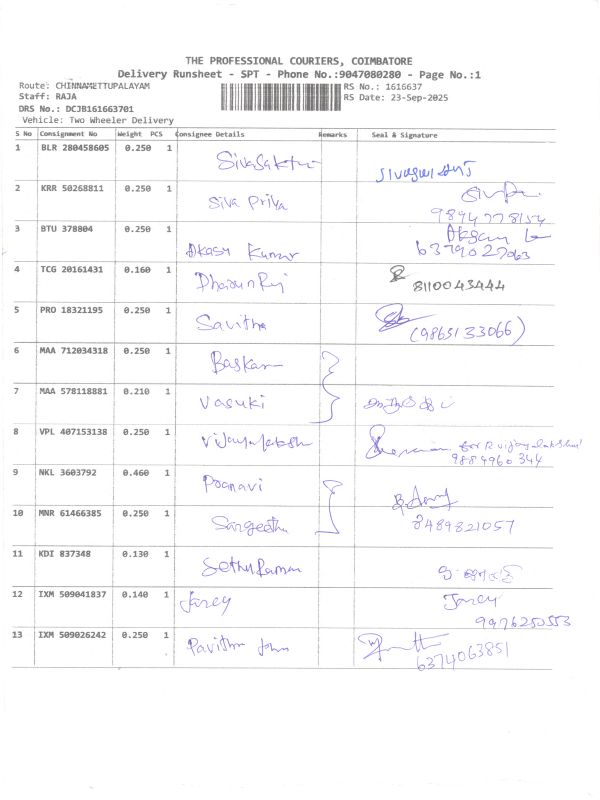 THE PROFESSIONAL COURIERS, COIMBATORE
Delivery Runsheet - SPT - Phone No.:9047080280 - Page No.:1
Route: CHINNAMETTUPALAYAM RS No.: 1616637
Staff: RAJA RS Date: 23-Sep-2025
DRS No.: DCJB161663701
Vehicle: Two Wheeler Delivery
S No Consignment No Weight PCS Consignee Details Remarks Seal & Signature
1 BLR 280458605 0.250 1 Sivasakthi
2 KRR 50268811 0.250 1 Siva Priya
9894778154
3 BTU 378804 0.250 1 Akash Kumar
6379027063
4 TCG 20161431 0.160 1
8110043444
5 PRO 18321195 0.250 1 Savitha (9865133066)
6 MAA 712034318 0.250 1 Baskar
7 MAA 578118881 0.210 1 Vasuki
8 VPL 407153138 0.250 1 Vijayalakshmi for R Vijayalakshmi
9884960344
9 NKL 3603792 0.460 1 Pranavi
10 MNR 61466385 0.250 1 Sangeetha 8489821057
11 KDI 837348 0.130 1 Sethu Raman
12 IXM 509041837 0.140 1 Jancy Jancy
9976250553
13 IXM 509026242 0.250 1 Pavithra John
6374063851